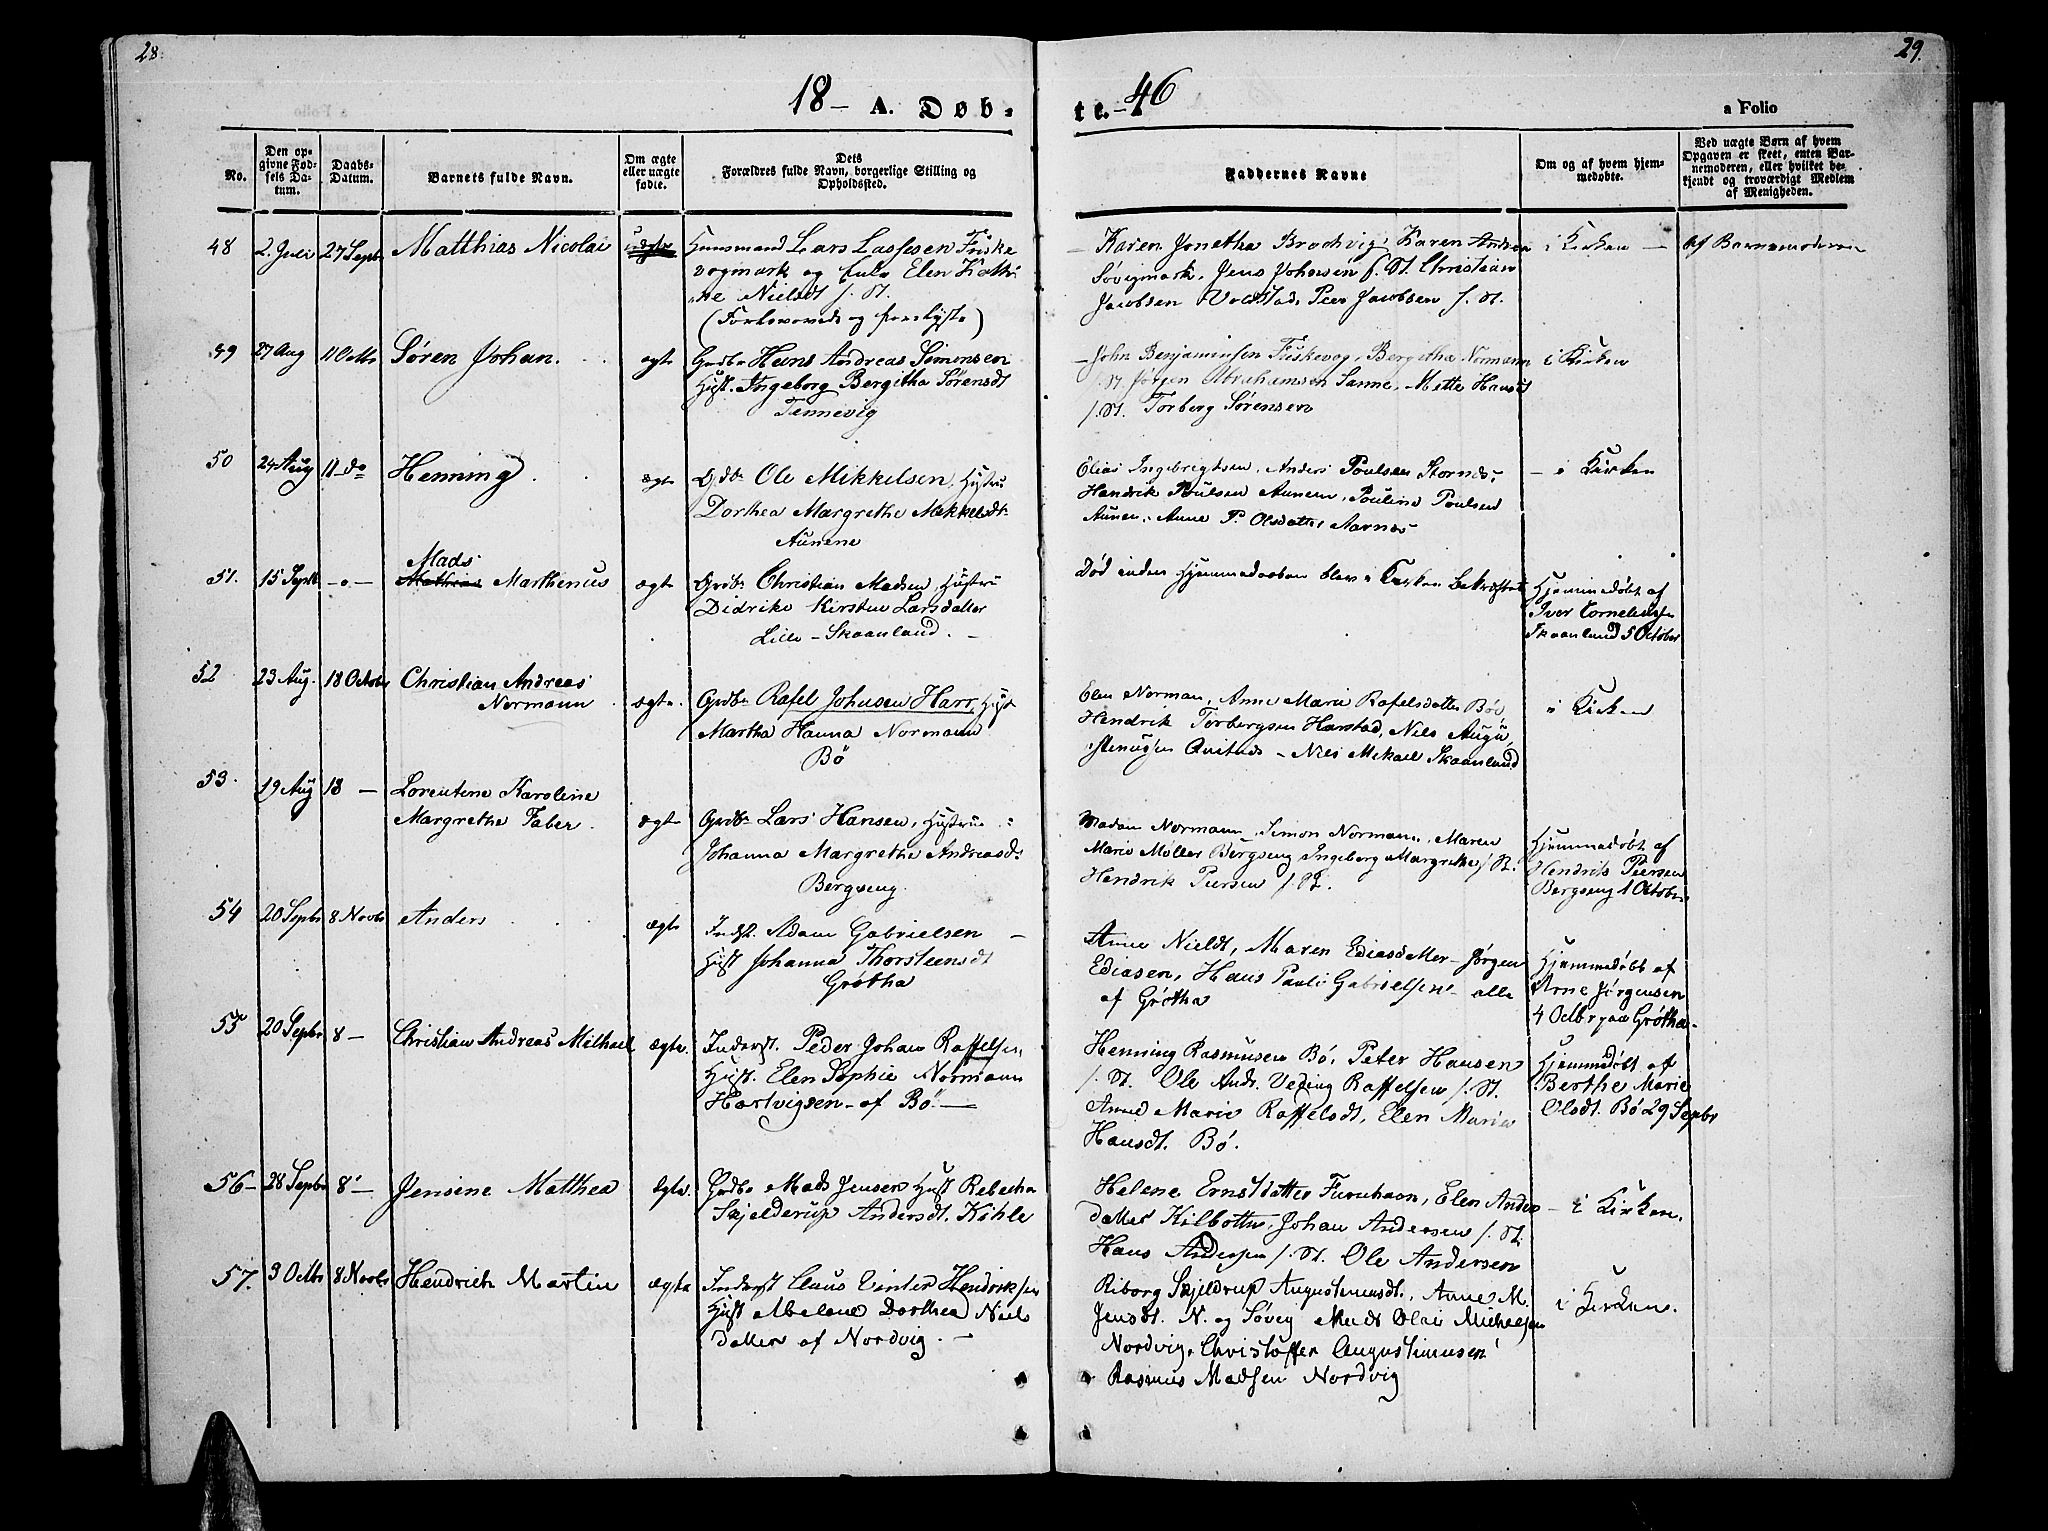 28.
29.
18— A. Døb-
te. —46
a Folio
No.
Den op-
givne Fød-
sels Da-
tum.
Daabs-
Datum.
Barnets fulde Navn.
Om ægte
eller uægte
fødte.
Dets
Forældres fulde Navn, borgerlige Stilling og
Opholdssted.
Faddernes Navne
Om og af hvem hjem-
medøbte.
Ved uægte Børn af hvem
Opgaven er skeet, enten Bar-
nemoderen, eller hvilket be-
kjendt og troværdigt Medlem
af Menigheden.
48 2. Juli 27 Septr Matthias Nicolai uægte
Huusmand Lars Lassesen Fiske
vogmark og Elen Kathri
ne Nielsdt f. St.
(Forlovede og forelyste)
Karen Jonetha Brochvig, Karen Andrea
Søvigmark, Jens Johnsen f. St. Christian
Jacobsen Voldstad, Peer Jacobsen f. St.
i Kirken — af Barnemoderen
49 27 Aug 11 Octbr Søren Johan. ægte
Grdbr Hans Andreas Simonsen
Hust. Ingeborg Bergitha Sørensdt
Tennevig
John Benjaminsen Fuskevog, Bergitha Normann
f. St. Jørgen Abrahamsen Sanne, Mette Hansdt
f. St. Torberg Sørensen
i Kirken
50 24 Aug 11 do Henning. ægte
Grdbr Ole Mikkelsen, Hustru
Dorthea Margrethe Mikkelsdtr
Aunene
Elias Ingebrigtsen, Anders Poulsen Stornes,
Hendrik Poulsen Aunene, Pouline Poulsen
Aunen, Anne P. Olsdatter Aarnes
— i Kirken
51. 15 Septbr —o— Mads
Mathias Marthenus ægte
Grdbr Christian Madsen, Hustru
Didrike Kirsten Larsdatter
Lille-Skaanland. —
Død inden Hjemmedaaben blev i Kirken Bekræftet
Hjemmedøbt af
Iver Corneliusen
Skaanland 5 October
52 23 Aug. 18 Octobr Christian Andreas
Normann ægte.
Grdbr Rafel Johnsen Harr, Hust
Martha Hanna Normann
Bö
Elen Norman, Anne Marie Rafelsdatter Bøe
Hendrik Torbergsen Harstad, Nils Augu
stenusen — Nils Mikael Skaanland
i Kirken
53. 19 Aug 18 — Lorentine Karoline
Margrethe Faber. ægte
Grdbr Lars Hansen, Hustru
Johanna Margrethe Andreasd.
Bergseng.
Madam Normann, Simon Normann, Maren
Marie Møller Bergseng Ingeborg Margrethe f. St.
Hendrik Peersen f. St.
Hjemmedøbt af
Hendrik Peersen
Bergseng 1 October
54 20 Septbr 8 Novbr Anders ægte
Indst. Adam Gabrielsen —
Hust Johanna Thorsteensdt
Grøtha
Anne Nielsdt, Maren Ediasdatter — Jørgen
Ediasen, Hans Pauli Gabrielsen — alle
af Grøtha
Hjemmedøbt af
Arne Jørgensen
4 Octbr paa Grøtha—
55 20 Septbr 8 — Christian Andreas Mikael ægte.
Inderst. Peder Johan Raffelsen
Hust. Elen Sophie Normann
Hartvigsen — af Bö —
Henning Rasmusen Bö, Peter Hansen
f. St. Ole Andr. Veding Raffelsen f. St.
Anne Marie Raffelsdt, Elen Maria
Hansdt. Bö.
Hjemmedøbt af
Berthe Marie
Olsdt. Bö 29 Septbr
56— 28 Septbr 8 — Jensine Matthea ægte.
Grdbr Mads Jensen Hust Rebecha
Skjelderup Andersdt. Kihle
Helene Ernstdatter Furuhavn, Elen Anders
datter Kilbotten, Johan Andersen f. St.
Hans Andersen f. St. Ole Andersen
— i Kirken.
57. 3 Octbr 8 Novbr Hendrich Martin ægte
Inderst Claus Vinter Hendriksen
Hust Abelone Dorthea Niels
datter af Nordvig. —
Riborg Skjeldrup Augustinusdt., Anne M.
Jensdt. N. og Søvig Mads Olai Michelsen
Nordvig, Christoffer Augustinusen
Rasmus Madsen Nordvig
i Kirken.